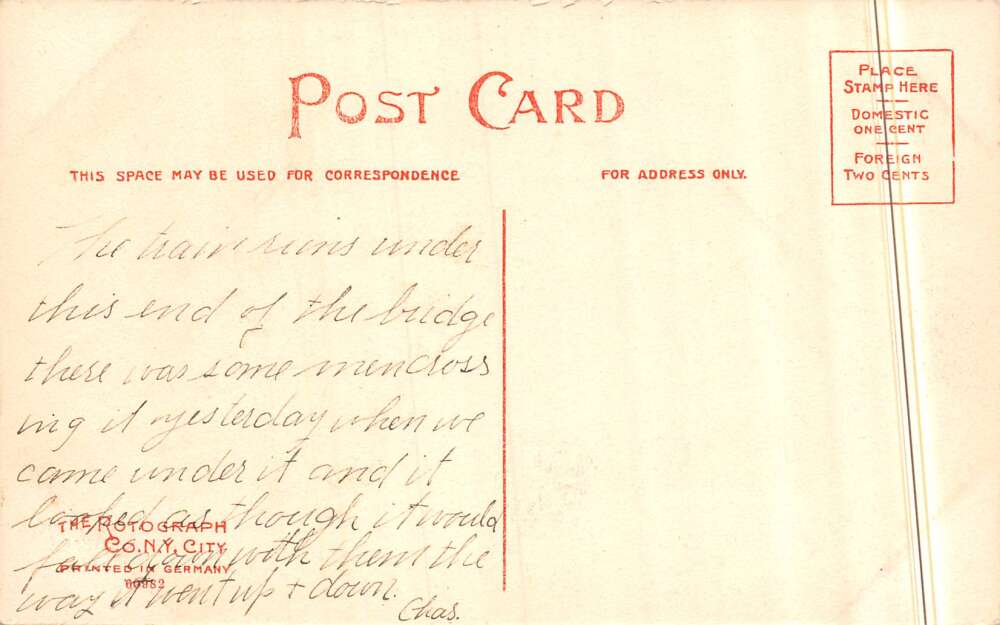 POST CARD
PLACE
STAMP HERE
DOMESTIC
ONE CENT
FOREIGN
TWO CENTS
THIS SPACE MAY BE USED FOR CORRESPONDENCE
FOR ADDRESS ONLY.
The train runs under
this end of the bridge
there was some men cross
ing it yesterday when we
came under it and it
looked as though it would
fall down with them the
way it went up + down.
Chas.
THE ROTOGRAPH
CO. N.Y. CITY
PRINTED IN GERMANY